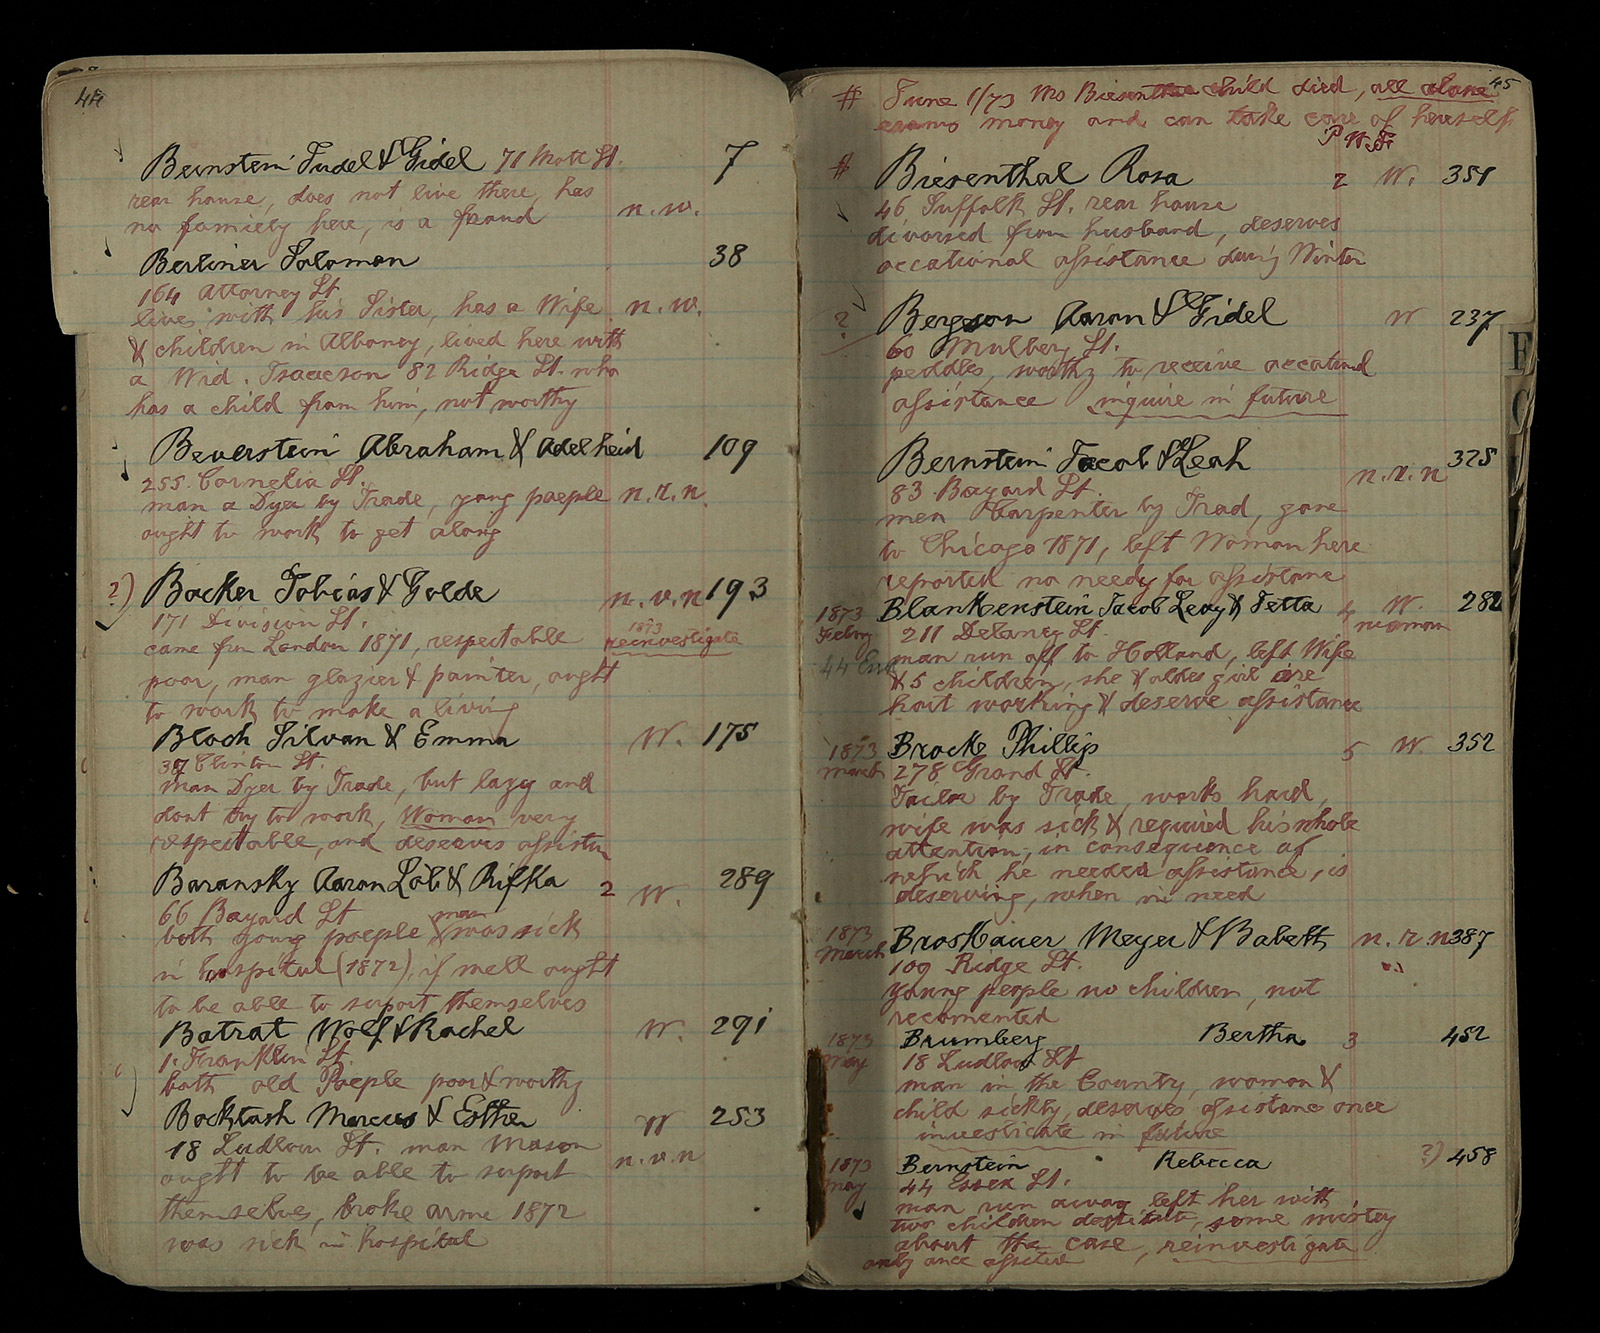 44
Bernstein Judel & Gidel 71 Mott St. 7
rear house, does not live there, has
no famiely here, is a fraud n.w.
Berliner Solomon 38
164 Attorney St
lives with his Sister, has a Wife n.w.
& children in Albaney, lived here with
a Wid. Isaacson 82 Ridge St. who
has a child from him, not worthy
Beverstein Abraham & Adelheid 109
255 Cornelia St.
man a Dyer by Trade, yong paeple n.r.n.
ought to work to get along
?) Backer Tobias & Golde n.v.n 193
171 Division St. 1873
came from London 1871, respectable reinvestigate
poor, man glazier & painter, ought
to work to make a living
Bloch Silvan & Emma W. 175
37 Clinton St.
man Dyer by Trade, but lazy and
dont try to work, Woman very
respectable, and deserves assistn
Baransky Aaron Löb & Rifka 2 W. 289
66 Bayard St
both young paeple man was sick
in hospital (1872), if well ought
to be able to suport themselves
Batrat Wolf & Rachel W. 291
1. Franklin St.
both old Paeple poor & worthy
Bocktash Marcus & Esther W 253
18 Ludlow St. man Mason
ought to be able to suport n.v.n
themselves, broke arme 1872
was sick in hospital
45
# June 1/73 Mrs Biesenthal child died, all alone
earns money and can take care of herself
P W. Fr
# Biesenthal Rosa 2 W. 351
46 Suffolk St. rear house
divorsed from husband, deserves
occational assistance during Winter
? Bergson Aaron & Fidel W 237
60 Mulbery St.
peddles, worthy to receive occational
assistance inquire in future
Bernstein Jacob & Leah n.r.n 328
83 Bayard St.
men Carpenter by Trad, gone
to Chicago 1871, left Woman here
reported no needy for assistane
1873 Blankenstein Jacob Levy & Jetta 4 W. 282
Febry 211 Delancy St. woman
44 Essx man run off to Holland, left Wife
& 5 children, she & oldes girl are
hart working & deserve assistance
1873 Brock Phillip 5 W 352
March 278 Grand St.
Tailor by Trade, works hard,
wife was sick & required his whole
attention, in consequence of
which he needed assistance, is
deserving, when in need
1873 Broskauer Meyer & Babett n.r.n 387
March 109 Ridge St.
Young people no children, not
recomented
1873 Brumberg Bertha 3 452
May 18 Ludlow St
man in the County, woman &
child sickly, deserves assistane once
investicate in future
1873 Bernstein Rebecca ?) 458
May 44 Essex St.
man run away left her with
two children destitute, some mistery
about the case, reinvestigate
only once assisted